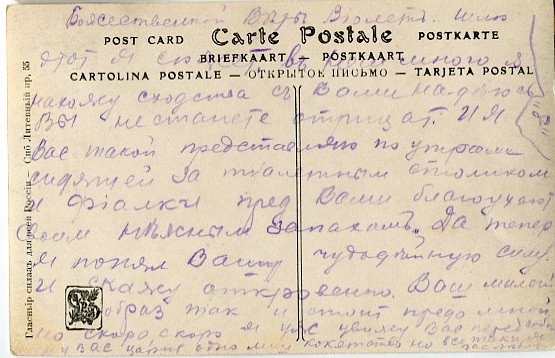 Божественной Вѣры Віолетъ. Шлю
POST CARD Carte Postale POSTKARTE
этот я
BRIEFKAART – POSTKAART
много я
CARTOLINA POSTALE – ОТКРЫТОЕ ПИСЬМО – TARJETA POSTAL
нахожу сходства съ Вами надѣюсь
Вы не станете отрицат. И я
Вас такой представляю по утрам
сидящей за туалетным столиком
и фіалки пред Вами благоухают
своим нѣжным запахом. Да тепер
я понял Вашу чудодѣйную силу
и скажу откровенно. Ваш милый
образ так и стоит предо мной
но скоро скоро я уж увижу Вас перед собой
у Вас одно кокетство но все таки
Гласныр силаа для всей Руссіи – Спб Литейный пр. 55